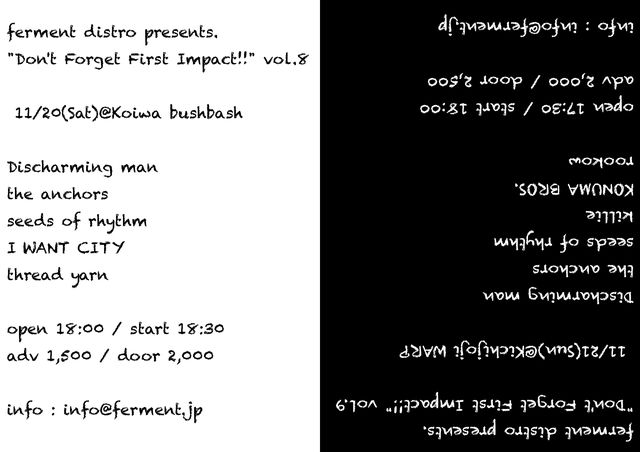 ferment distro presents.
"Don't Forget First Impact!!" vol.8
11/20(Sat)@Koiwa bushbash
Discharming man
the anchors
seeds of rhythm
I WANT CITY
thread yarn
open 18:00 / start 18:30
adv 1,500 / door 2,000
info : info@ferment.jp
ferment distro presents.
"Don't Forget First Impact!!" vol.9
11/21(Sun)@Kichijoji WARP
Discharming man
the anchors
seeds of rhythm
killie
KONUMA BROS.
rookow
open 17:30 / start 18:00
adv 2,000 / door 2,500
info : info@ferment.jp